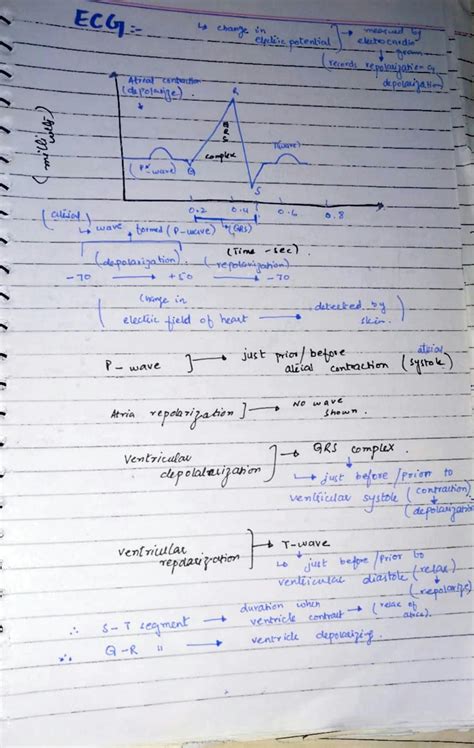 ECG :-
↳ change in electric potential → measured by electrocardiogram
(records repolarization & depolarization)
Atrial contraction
(depolarize)
R
QRS
complex
T(wave)
(P-wave)
Q
S
(milli volts)
0.2 0.4 0.6 0.8
(QRS)
(Time - sec)
(atrial)
↳ wave formed (P-wave)
(depolarization) (repolarization)
-70 → +50 → -70
(change in electric field of heart → detected by skin.)
P-wave ] → just prior/before atrial contraction (atrial systole)
Atria repolarization ] → No wave shown.
Ventricular depolalarization ] → QRS complex.
↳ just before/prior to
ventricular systole (contraction)
(depolarization
ventricular repolarization ] → T-wave
↳ just before/prior to
ventricular diastole (relax)
(repolarize)
∴ S-T segment → duration when ventricle contract → (relax of atria).
∴ Q-R " → ventricle depolarizing.